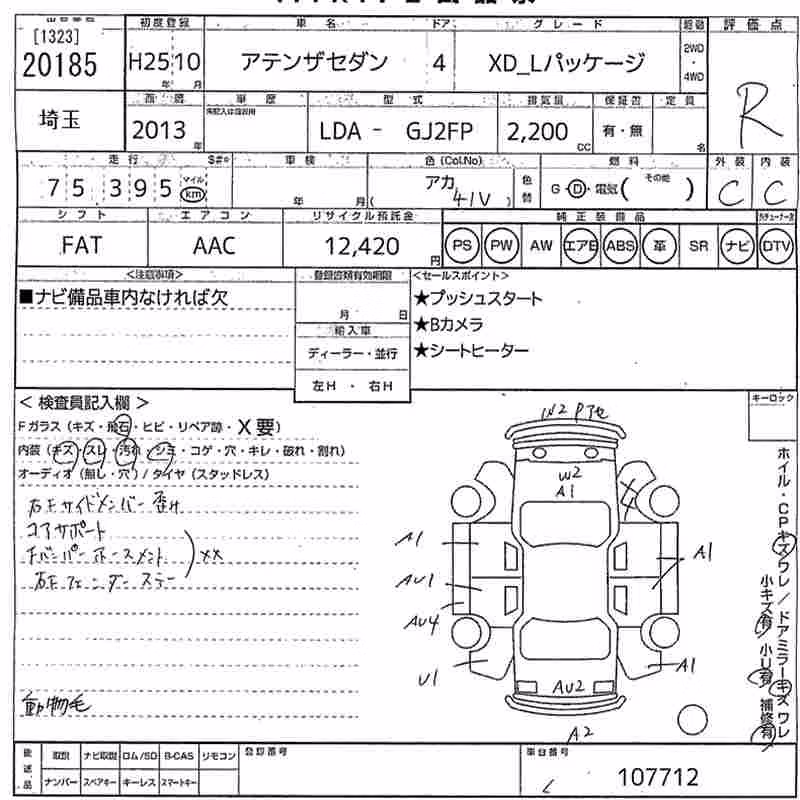 [1323]
20185
初度登録
車 名
ドア
グレード
評価点
H25 10
年 月
アテンザセダン
4
XD_Lパッケージ
2WD
・
4WD
R
埼玉
2013
年
車 歴
型 式
排気量
保証書
定 員
LDA - GJ2FP
2,200
CC
有・無
名
走 行
車 検
色(Col.No)
燃 料
外 装
内 装
75 395
マイル
km
年 月
アカ
( 41V )
色替
G・D・電気( その他 )
C
C
シフト
エアコン
リサイクル預託金
純正装備品
FAT
AAC
12,420
円
PS
PW
AW
エアB
ABS
革
SR
ナビ
DTV
<注意事項>
登録書類有効期限
<セールスポイント>
■ナビ備品車内なければ欠
月 日
輸入車
ディーラー・並行
左H ・ 右H
★プッシュスタート
★Bカメラ
★シートヒーター
< 検査員記入欄 >
Fガラス(キズ・飛石・ヒビ・リペア跡・X要)
内装(キズ・スレ・汚れ・シミ・コゲ・穴・キレ・破れ・割れ)
オーディオ(無し・穴)/タイヤ(スタッドレス)
右Fサイドメンバー歪み
コアサポート
FバンパーホースメントXX
右Fフェンダーステー
動物毛
キーロック
W2 Pアセ
W2
A1
A1
AU1
AU4
U1
A1
A1
AU2
A2
ホイル・CPキズワレ/ドアミラーキズワレ
小キズ有 小U有 補修有
後送品
取説
ナビ取説
ロム/SD
B-CAS
リモコン
ナンバー
スペアキー
キーレス
スマートキー
登録番号
車台番号
107712